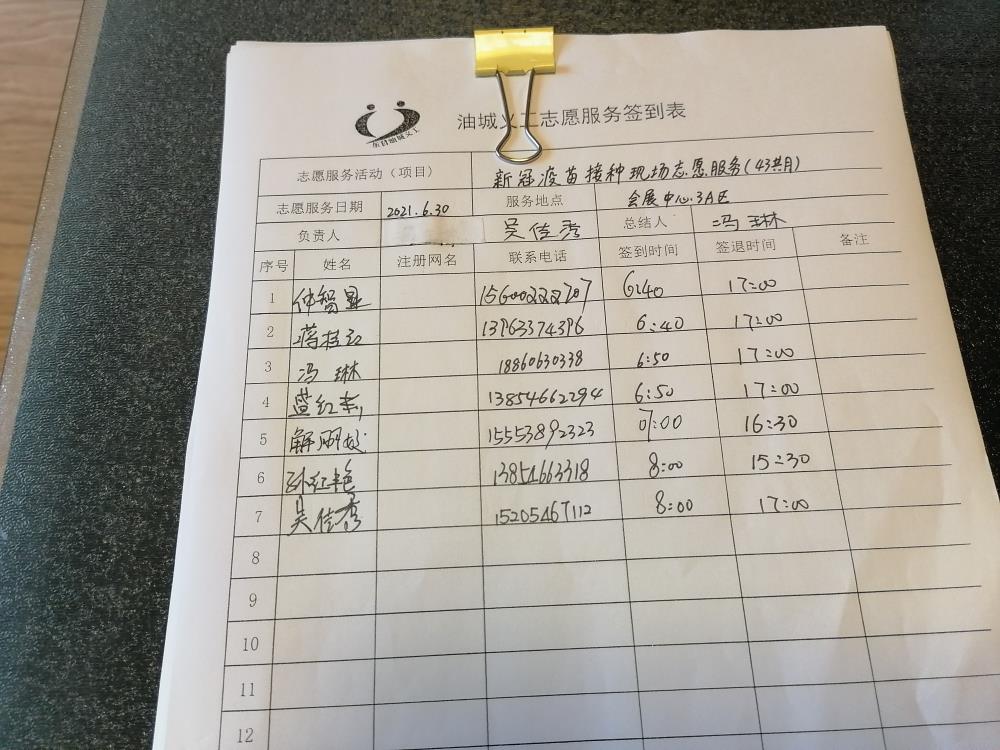 东营油城义工
油城义工志愿服务签到表
志愿服务活动（项目） 新冠疫苗接种现场志愿服务(43共月)
志愿服务日期 2021.6.30 服务地点 会展中心.3A区
负责人 吴佳秀 总结人 冯琳
序号 姓名 注册网名 联系电话 签到时间 签退时间 备注
1 仲智显 15600222707 6:40 17:00
2 蒋桂云 13963374396 6:40 17:00
3 冯琳 18860630338 6:50 17:00
4 蓝红 13854662294 6:50 17:00
5 解 15553892323 07:00 16:30
6 孙红艳 13854663318 8:00 15:30
7 吴佳秀 15205467112 8:00 17:00
8
9
10
11
12